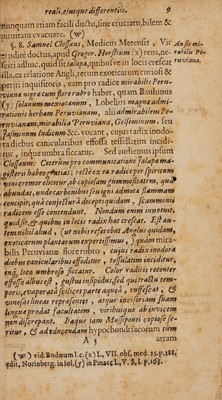 reali, ejusque differentiis. 9
nunquam etiam facili ductu, sine cruciatu, bilem &
pituitam evacuare. (w)
§. 8. Samuel Closſæus, Medicus Metensis, Vir
eruditè doctus, apud Gregor. Horſtium (x) rem, ac
ſcilicet adhuc, quid ſit ialapa, quibuſve in locis creſcat
illa, ex relatione Angli, rerum exoticarum curioſi &
inquiſitoris, eam pro radice mirabilis Peru-
viana nigræ cum flore rubro habet, quam Bauhinus
(y) ſolanum mexiocanum, Lobelius magnæ admi-
rationis herbam Peruvianam, alii admirabilem Pe-
ruvianam, mirabilia Peruviana, Gelſeminum, ſeu
Jaſminum Indicum &c. vocant, cujus radix inodo-
ra diebus canicularibus effoſſa teſſellatim incidi-
tur, inque umbra ſiccatur. Sed audiemus ipſum
Cloſſæum: Ceterùm pro communicatione jalapa ma-
giſterii habeo gratias; reſtè ex ea radice per ſpiritum
vini cremor elicitur, ob copioſam gummoſitatem, qua
abundat, unde carbonibus ſcu igni admota flammam
concipit, quâ conjecturâ decepti quidam, ſcammonii
radicem eſſe contendunt. Nondum enim innotuit,
quid ſit, & quibus in locis radix hæc creſcat. Eſt au-
tem nihil aliud, (ut nobis referebat Anglus quidam,
exoticarum plantarum expertiſſimus,) quàm mira-
bilis Peruviana flore rubro, cujus radix inodora
diebus canicularibus effoditur, teſſulatim inciditur,
inq; loco umbroſo ſiccatur. Color radicis recenter
effoſſæ albus eſt, guſtus inſipidus, ſed qui tractu tem-
poris, evaporatâ ſcilicet parte aqueâ, ruffeſcat, &
vinoſas lineas repreſentet, atque inciſoriam ſuam
linguæ prodat facultatem, viribuſque ab invicem
non diſcrepant. Itaque jam Muſiponti copioſè ſe-
ritur, & ad educendam hypochondriacorum tum
A 5 atram
(w) vid. Bodnum l. c. (x) L. VII. obſ. med. 25. p. 388,
edit. Norinberg. in fol. (y) in Pinace L. V. S. I. p. 168.
An ſit mi-
rabilis Pe-
ruviana.